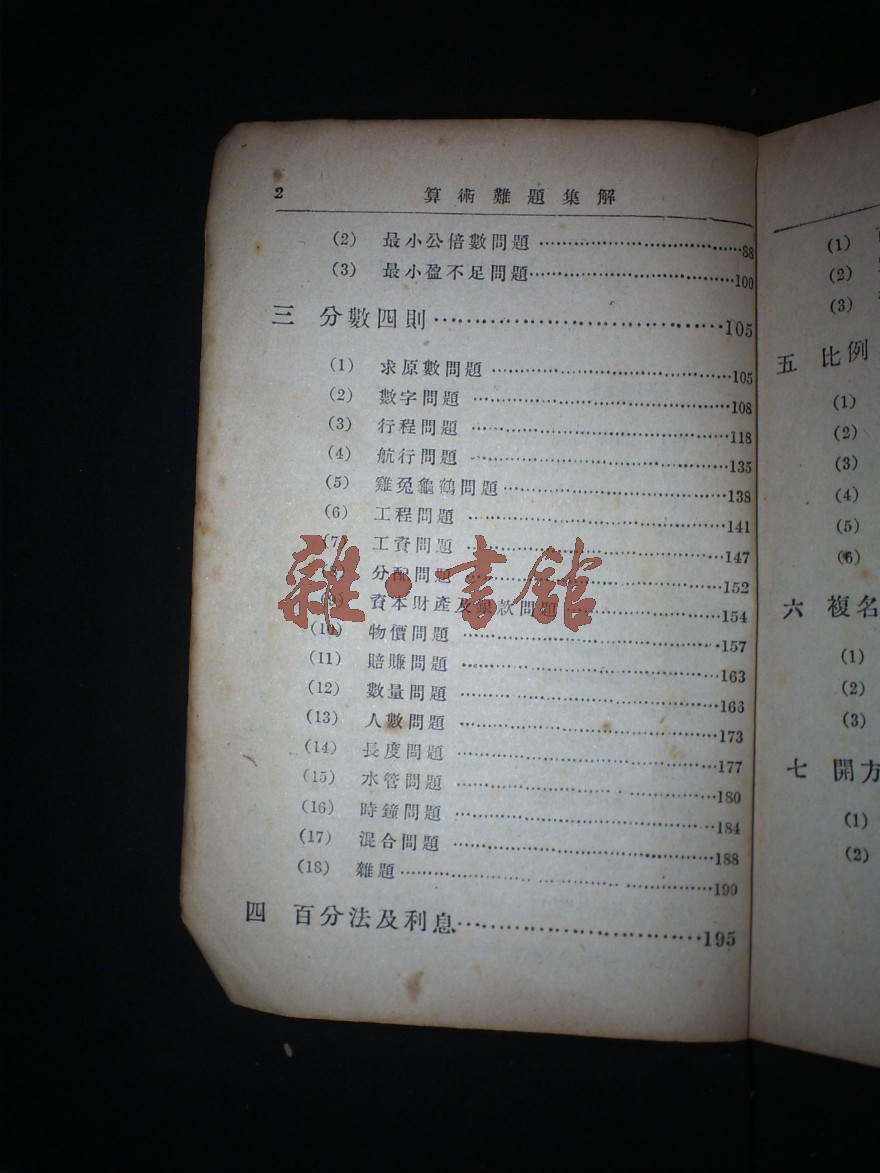 2 算術難題集解
(2) 最小公倍數問題 88
(3) 最小盈不足問題 100
三 分數四則 105
(1) 求原數問題 105
(2) 數字問題 108
(3) 行程問題 118
(4) 航行問題 135
(5) 雞兔龜鶴問題 138
(6) 工程問題 141
(7) 工資問題 147
(8) 分配問題 152
(9) 資本財產及錢款問題 154
(10) 物價問題 157
(11) 賠賺問題 163
(12) 數量問題 166
(13) 人數問題 173
(14) 長度問題 177
(15) 水管問題 180
(16) 時鐘問題 184
(17) 混合問題 188
(18) 雜題 190
四 百分法及利息 195
雜·書館
(1)
(2)
(3)
五 比例
(1)
(2)
(3)
(4)
(5)
(6)
六 複名
(1)
(2)
(3)
七 開方
(1)
(2)